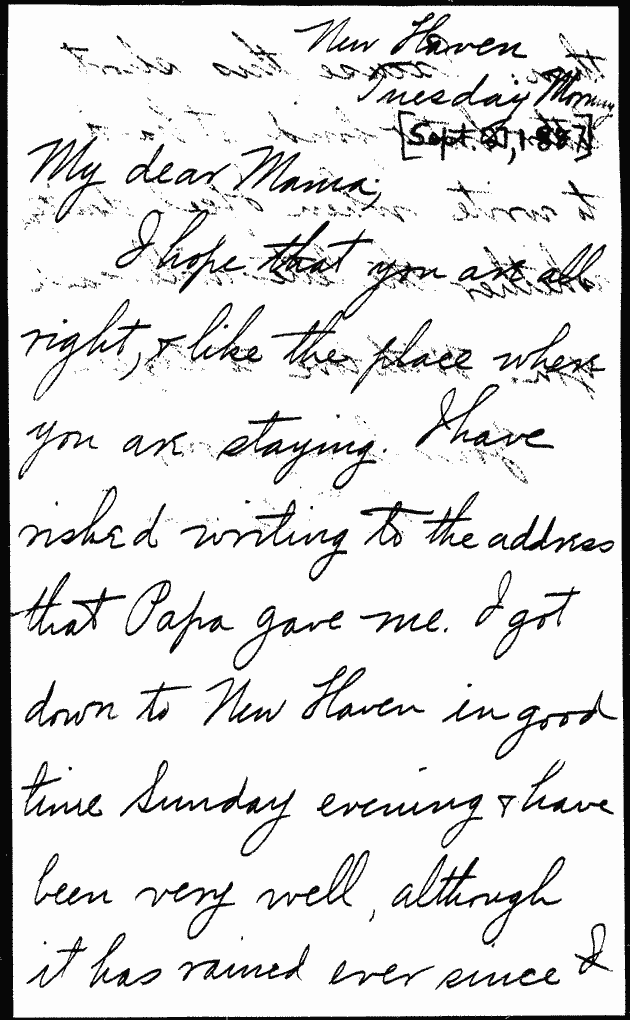 New Haven
Tuesday Morning
[Sept. 1887]
My dear Mama,
I hope that you are all
right, & like the place where
you are staying. I have
risked writing to the address
that Papa gave me. I got
down to New Haven in good
time Sunday evening & have
been very well, although
it has rained ever since I